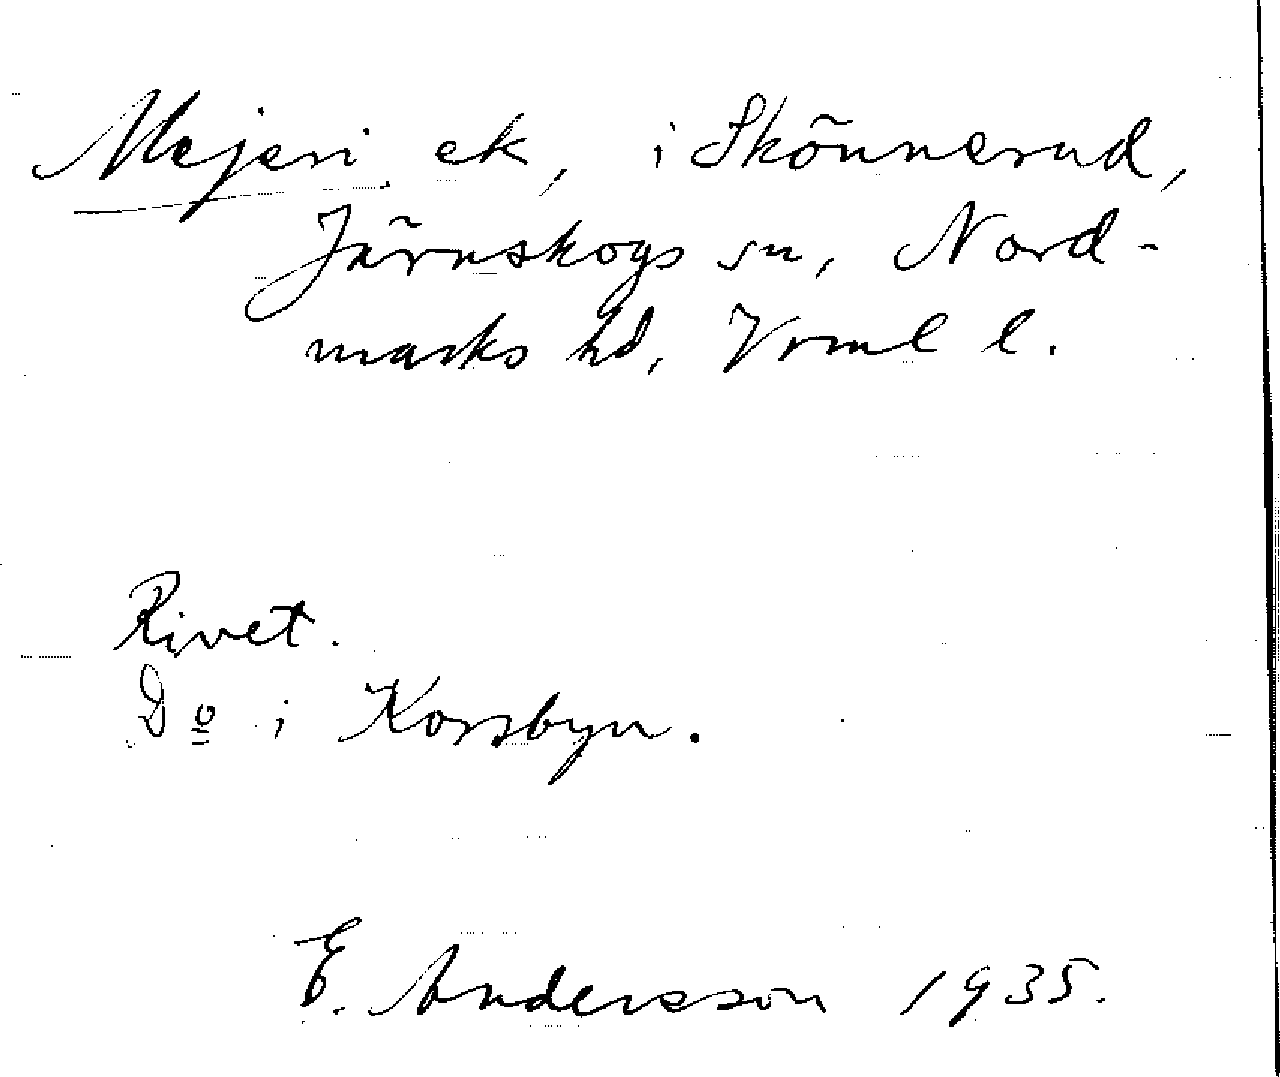 Mejeri ek, i Skönnerud,
Järnskogs sn, Nord-
marks hd, Vrml l.
Rivet.
Dº i Korsbyn.
E. Andersson 1935.